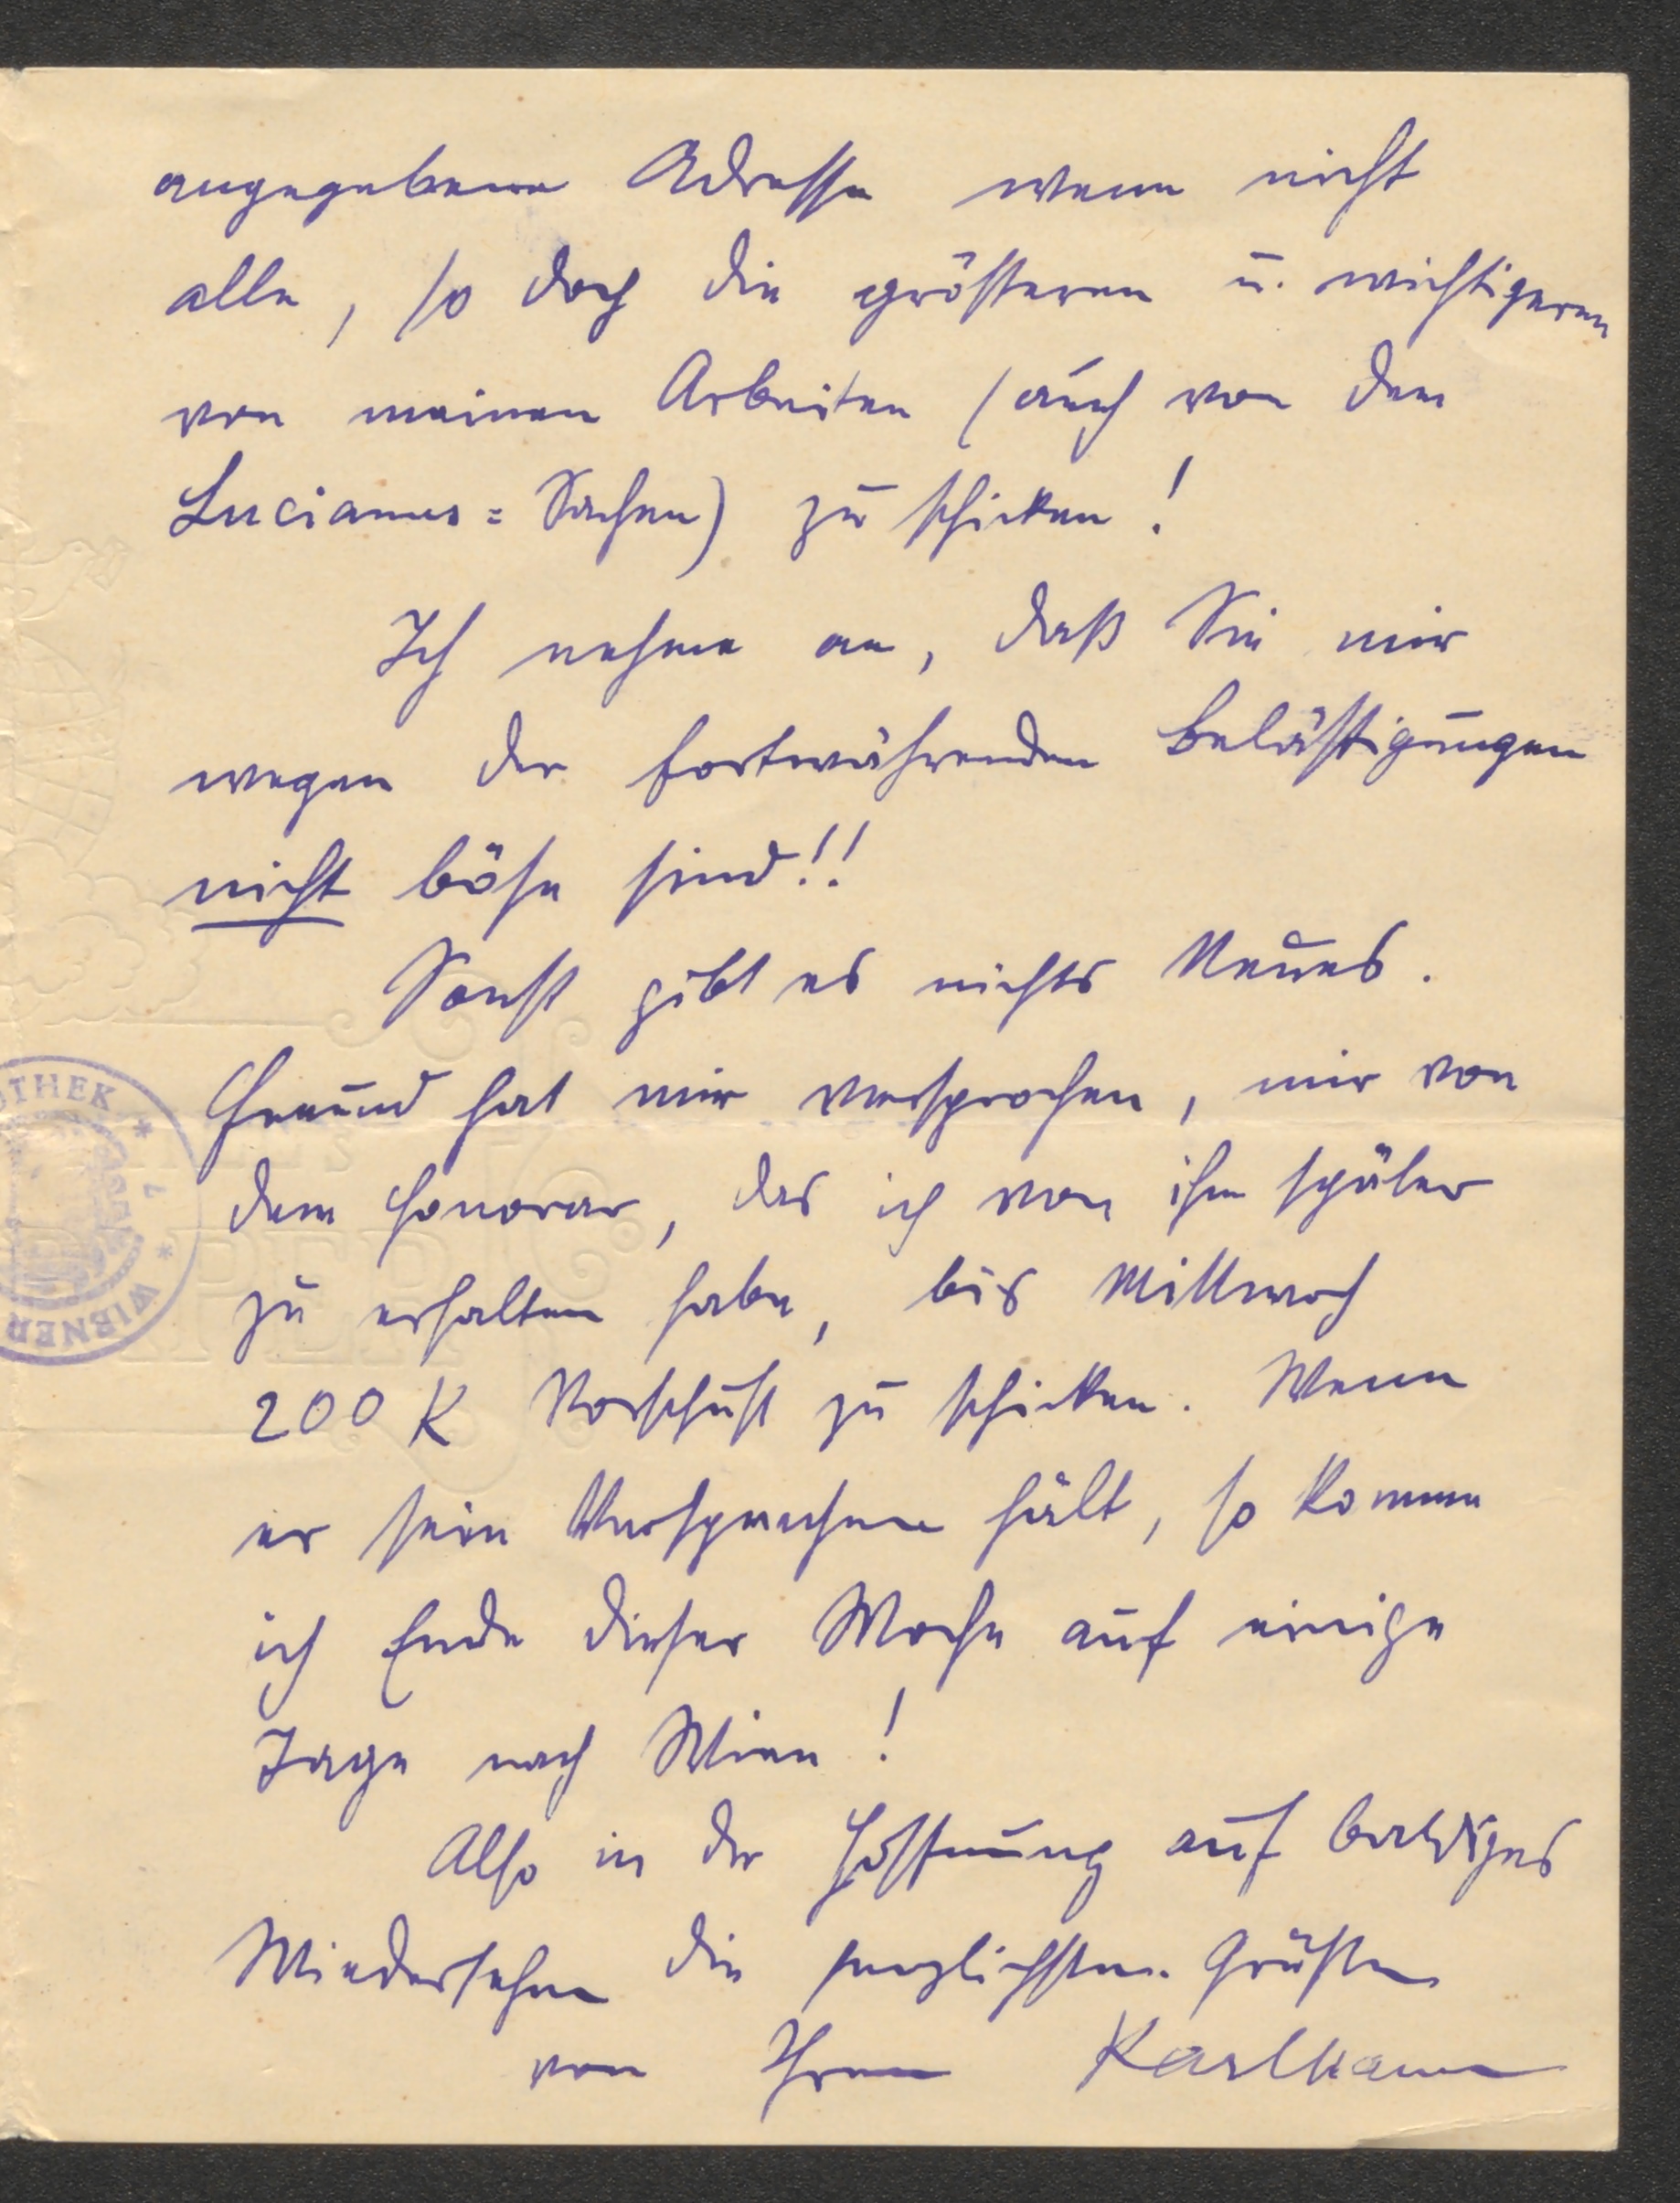 angegebene Adresse wenn nicht
alle, so doch die größeren u. wichtigeren
von meinen Arbeiten (auch von den
Lucianus=Sachen) zu schicken!
Ich nehme an, daß Sie mir
wegen der fortwährenden Belästigungen
nicht böse sind!!
Sonst gibt es nichts Neues.
Freund hat mir versprochen, mir von
dem Honorar, das ich von ihm später
zu erhalten habe, bis Mittwoch
200 K Vorschuß zu schicken. Wenn
er sein Versprechen hält, so komme
ich Ende dieser Woche auf einige
Tage nach Wien!
Also in der Hoffnung auf baldiges
Wiedersehen die herzlichsten Grüße
von Ihrem
OTHEK *
WIENER